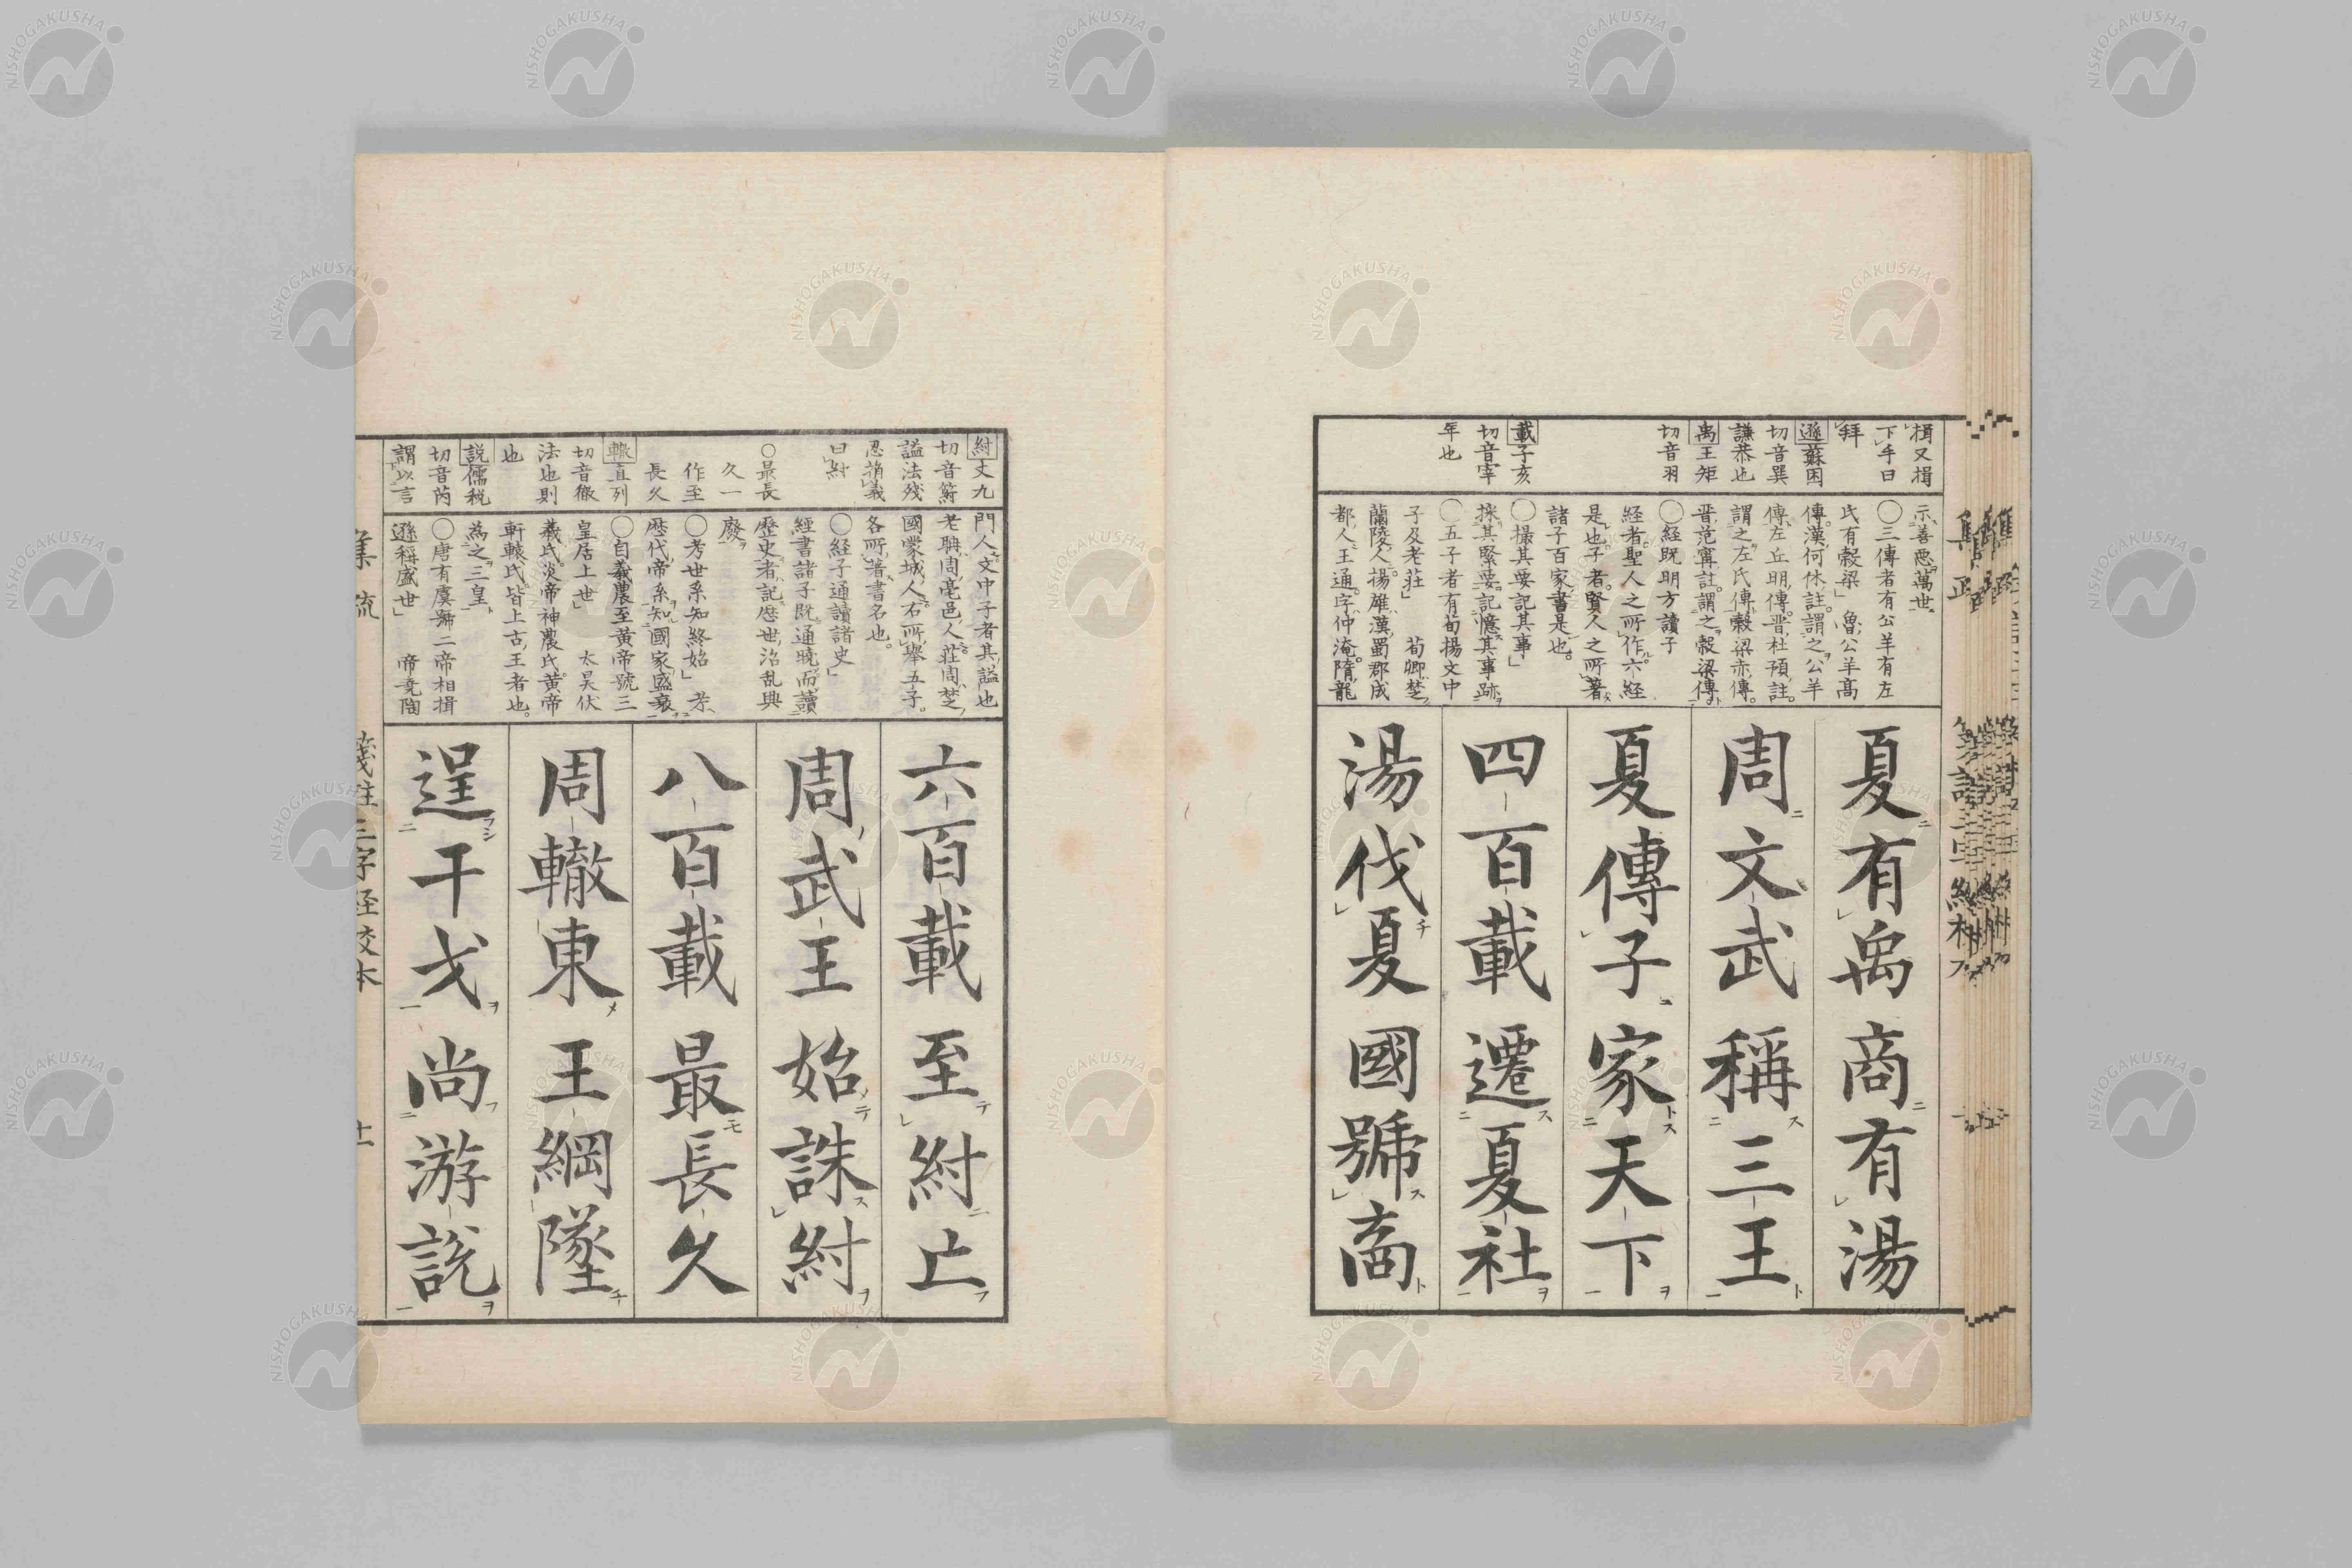 揖又揖
下手曰
拜
遜蘇困
切音巽
謙恭也
禹王矩
切音羽
載子亥
切音宰
年也
示善惡萬世
〇三傳者有公羊有左
氏有穀梁 魯公羊高
傳漢何休註謂之公羊
傳左丘明傳晋杜預註
謂之左氏傳穀梁赤傳
晋范甯註謂之穀梁傳
〇經既明方讀子
経者聖人之所作六經
是也子者賢人之所著
諸子百家書是也
〇撮其要記其事
採其緊要記憶其事跡
〇五子者有荀揚文中
子及老莊 荀卿楚
蘭陵人揚雄漢蜀郡成
都人王通字仲淹隋龍
夏有禹商有湯
周文武稱三王
夏傳子家天下
四百載遷夏社
湯伐夏國號商
紂丈九
切音紂
謚法残
忍損義
曰紂
〇最長
久一
作至
長久
轍直列
切音徹
法也則
也
説儒税
切音芮
謂以言
門人文中子者其謚也
老聃周亳邑人莊周楚
國蒙城人右所舉五子
各所著書名也
〇經子通讀諸史
經書諸子既通曉而讀
歴史者記歴世治乱興
廢
〇考世系知終始 考
歴代帝系知國家盛衰
〇自羲農至黄帝號三
皇居上世 太昊伏
羲氏炎帝神農氏黄帝
軒轅氏皆上古王者也
為之三皇
〇唐有虞號二帝相揖
遜稱盛世 帝堯陶
六百載至紂亡
周武王始誅紂
八百載最長久
周轍東王綱墜
逞干戈尚游説
箋註三字経校本
十一
NISHOGAKUSHA